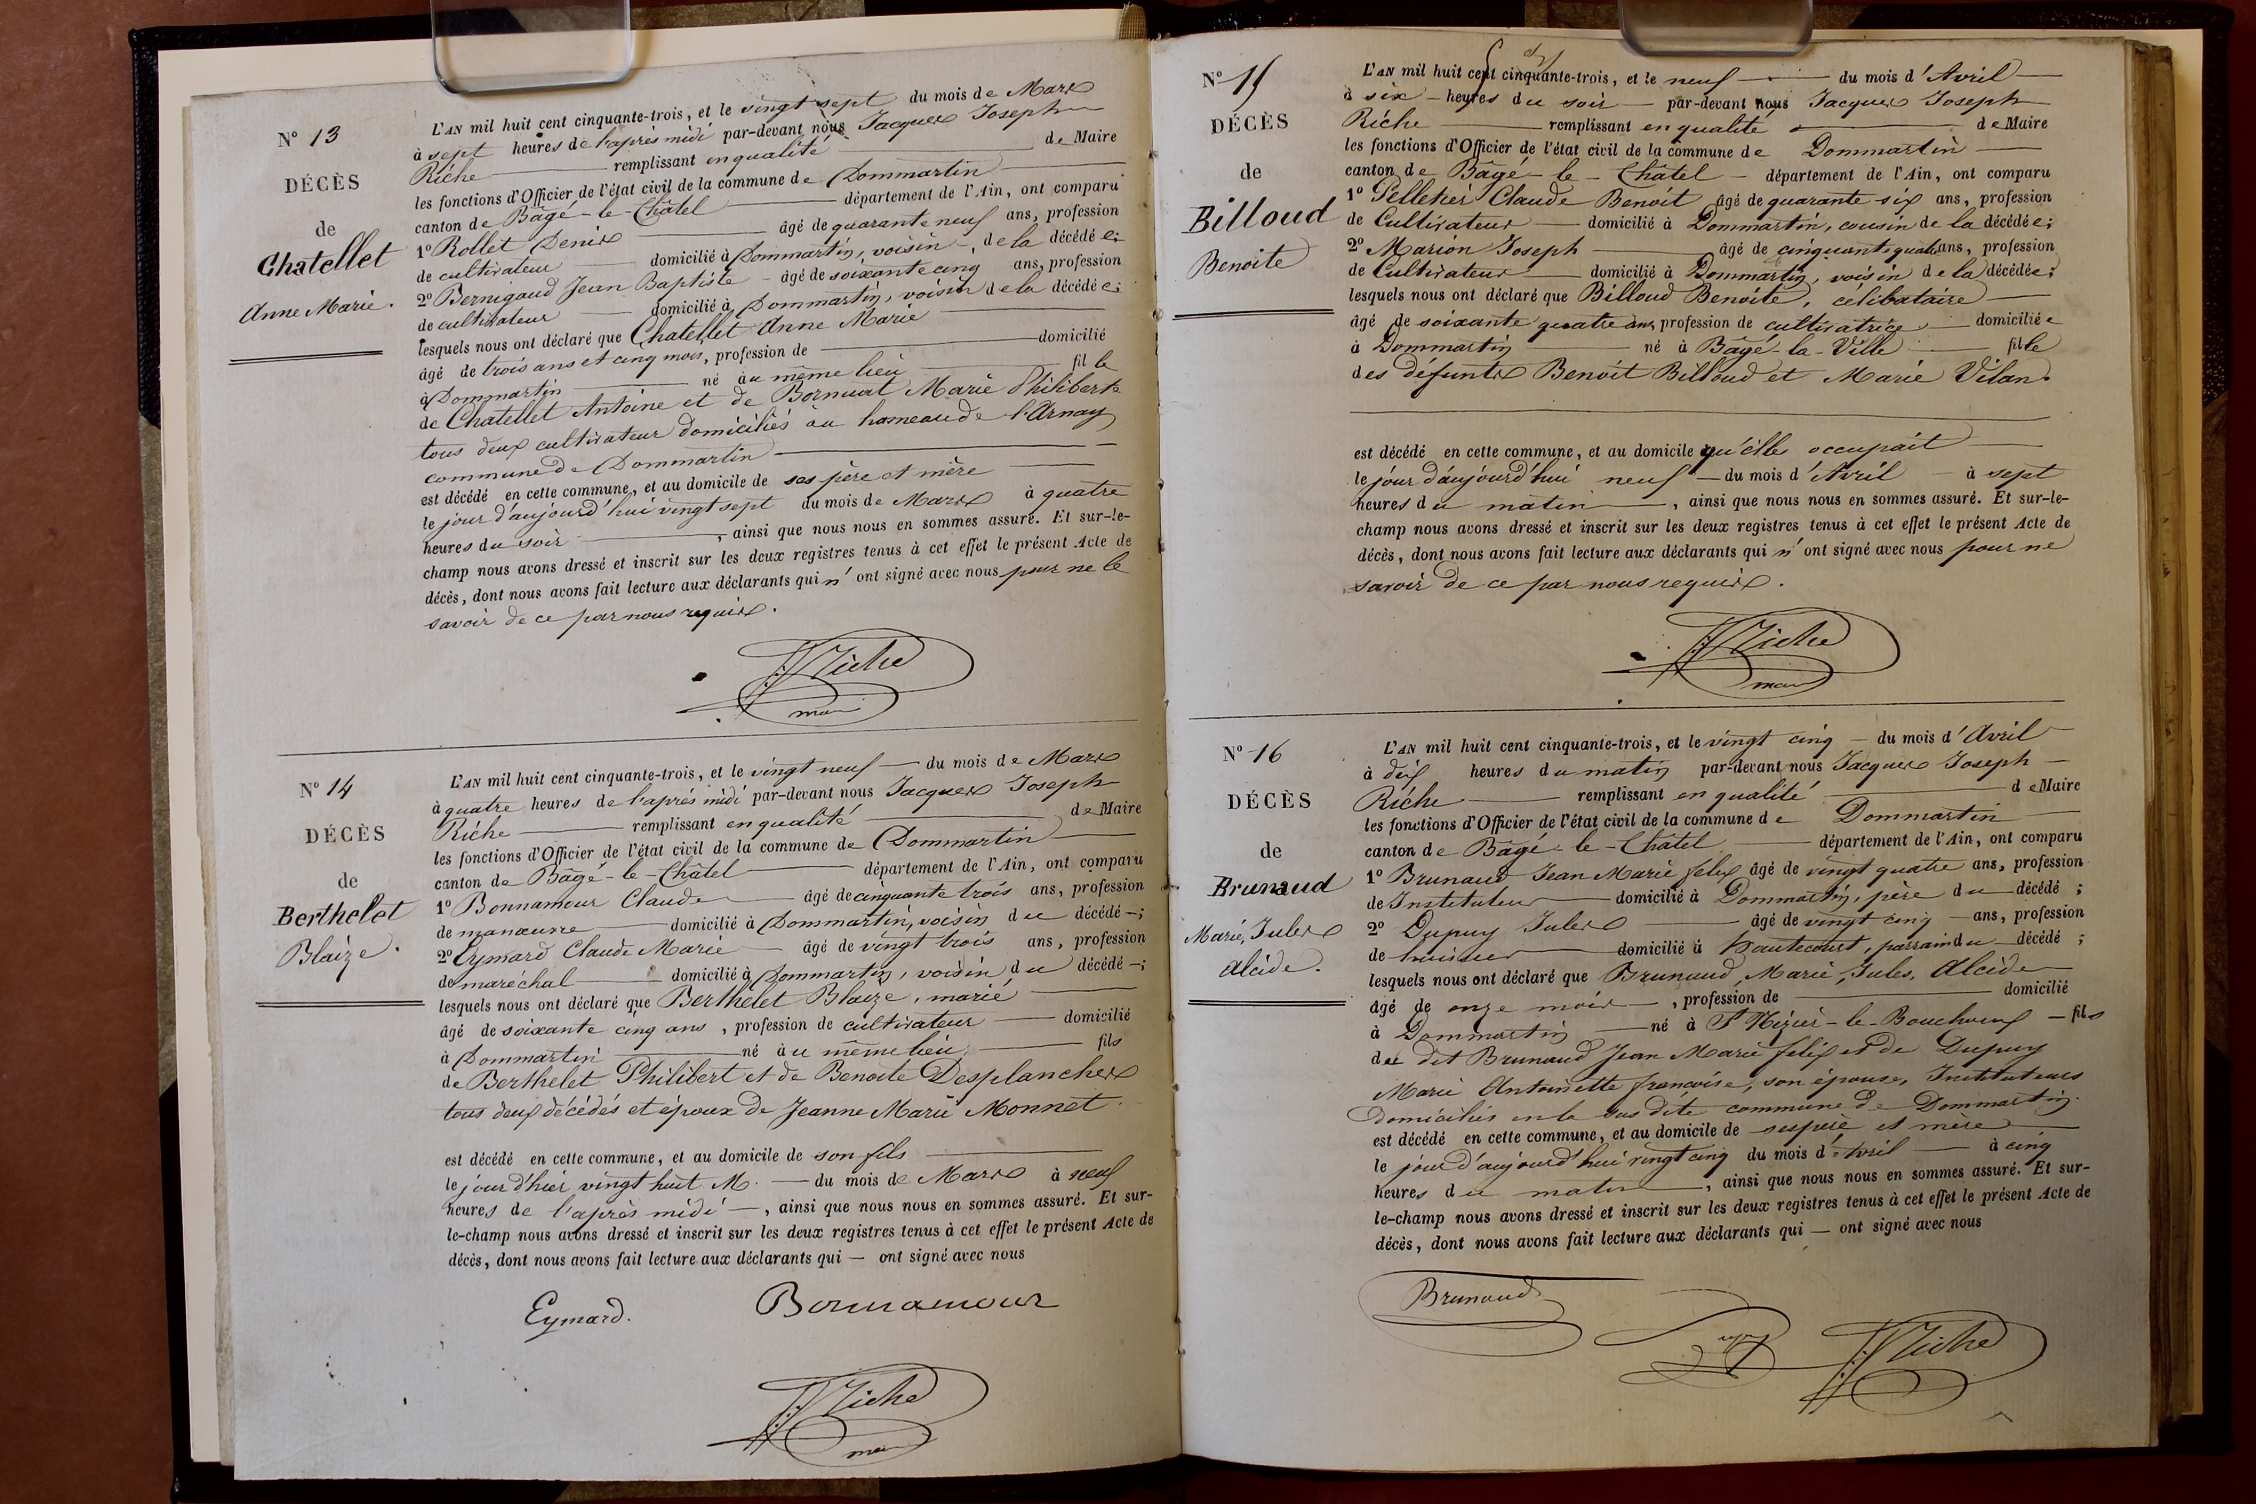 N° 13
DÉCÈS
de
Chatellet
Anne Marie.
L'AN mil huit cent cinquante-trois, et le vingt sept du mois de Mars
à sept heures de l'après midi par-devant nous Jacques Joseph
Riche remplissant en qualité de Maire
les fonctions d'Officier de l'état civil de la commune de Dommartin
canton de Bâgé-le-Châtel département de l'Ain, ont comparu
1° Rollet Denis âgé de quarante neuf ans, profession
de cultivateur domicilié à Dommartin, voisin, de la décédée;
2° Bernigaud Jean Baptiste âgé de soixante cinq ans, profession
de cultivateur domicilié à Dommartin, voisin de la décédée;
lesquels nous ont déclaré que Chatellet Anne Marie
âgé de trois ans et cinq mois, profession de domicilié
à Dommartin né au même lieu fille
de Chatellet Antoine et de Marie Philiberte
tous deux cultivateur domiciliés au hameau de l'Arnay
commune de Dommartin
est décédé en cette commune, et au domicile de ses père et mère
le jour d'aujourd'hui vingt sept du mois de Mars à quatre
heures du soir, ainsi que nous nous en sommes assuré. Et sur-le-
champ nous avons dressé et inscrit sur les deux registres tenus à cet effet le présent Acte de
décès, dont nous avons fait lecture aux déclarants qui n'ont signé avec nous pour ne le
savoir de ce par nous requis.
JJ Riche
maire
N° 14
DÉCÈS
de
Berthelet
Blaize.
L'AN mil huit cent cinquante-trois, et le vingt neuf du mois de Mars
à quatre heures de l'après midi par-devant nous Jacques Joseph
Riche remplissant en qualité de Maire
les fonctions d'Officier de l'état civil de la commune de Dommartin
canton de Bâgé-le-Châtel département de l'Ain, ont comparu
1° Bonnamour Claude âgé de cinquante trois ans, profession
de manœuvre domicilié à Dommartin, voisin du décédé;
2° Eymard Claude Marie âgé de vingt trois ans, profession
de maréchal domicilié à Dommartin, voisin du décédé;
lesquels nous ont déclaré que Berthelet Blaize, marié
âgé de soixante cinq ans, profession de cultivateur domicilié
à Dommartin né au même lieu fils
de Berthelet Philibert et de Benoite Desplanches
tous deux décédés et époux de Jeanne Marie Monnet.
est décédé en cette commune, et au domicile de son fils
le jour d'hier vingt huit M. du mois de Mars à neuf
heures de l'après midi, ainsi que nous nous en sommes assuré. Et sur-
le-champ nous avons dressé et inscrit sur les deux registres tenus à cet effet le présent Acte de
décès, dont nous avons fait lecture aux déclarants qui — ont signé avec nous
Eymard. Bonnamour
JJ Riche
maire
N° 15
DÉCÈS
de
Billoud
Benoite
L'AN mil huit cent cinquante-trois, et le neuf du mois d'Avril
à six heures du soir par-devant nous Jacques Joseph
Riche remplissant en qualité de Maire
les fonctions d'Officier de l'état civil de la commune de Dommartin
canton de Bâgé-le-Châtel département de l'Ain, ont comparu
1° Pelletier Claude Benoit âgé de quarante six ans, profession
de Cultivateur domicilié à Dommartin, cousin de la décédée;
2° Marion Joseph âgé de cinquante quatre ans, profession
de Cultivateur domicilié à Dommartin, voisin de la décédée;
lesquels nous ont déclaré que Billoud Benoite, célibataire
âgé de soixante quatre ans, profession de cultivatrice domiciliée
à Dommartin né à Bâgé-la-Ville fille
des défunts Benoit Billoud et Marie Vilan.
est décédé en cette commune, et au domicile qu'elle occupait
le jour d'aujourd'hui neuf du mois d'Avril à sept
heures du matin, ainsi que nous nous en sommes assuré. Et sur-le-
champ nous avons dressé et inscrit sur les deux registres tenus à cet effet le présent Acte de
décès, dont nous avons fait lecture aux déclarants qui n'ont signé avec nous pour ne
savoir de ce par nous requis.
JJ Riche
maire
N° 16
DÉCÈS
de
Brunaud
Marie, Jules
Alcide.
L'AN mil huit cent cinquante-trois, et le vingt cinq du mois d'Avril
à dix heures du matin par-devant nous Jacques Joseph
Riche remplissant en qualité de Maire
les fonctions d'Officier de l'état civil de la commune de Dommartin
canton de Bâgé-le-Châtel département de l'Ain, ont comparu
1° Brunaud Jean Marie felix âgé de vingt quatre ans, profession
de Instituteur domicilié à Dommartin, père du décédé;
2° Dupuy Jules âgé de vingt cinq ans, profession
de huissier domicilié à hautecourt, parrain du décédé;
lesquels nous ont déclaré que Brunaud, Marie, Jules, Alcide
âgé de onze mois, profession de domicilié
à Dommartin né à St Nizier-le-Bouchoux fils
du dit Brunaud Jean Marie felix et de Dupuy
Marie Antoinette françoise, son épouse, Instituteurs
domiciliés en la sus dite commune de Dommartin.
est décédé en cette commune, et au domicile de ses père et mère
le jour d'aujourd'hui vingt cinq du mois d'Avril à cinq
heures du matin, ainsi que nous nous en sommes assuré. Et sur-
le-champ nous avons dressé et inscrit sur les deux registres tenus à cet effet le présent Acte de
décès, dont nous avons fait lecture aux déclarants qui — ont signé avec nous
Brunaud
JJ Riche